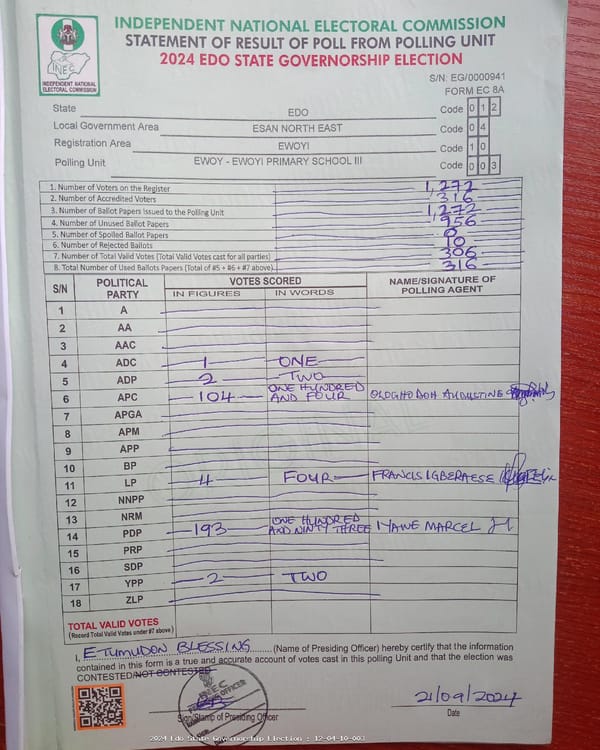 INDEPENDENT NATIONAL ELECTORAL COMMISSION
STATEMENT OF RESULT OF POLL FROM POLLING UNIT
2024 EDO STATE GOVERNORSHIP ELECTION
INEC
INDEPENDENT NATIONAL
ELECTORAL COMMISSION
S/N: EG/0000941
FORM EC 8A
State EDO Code 0 1 2
Local Government Area ESAN NORTH EAST Code 0 4
Registration Area EWOYI Code 1 0
Polling Unit EWOY - EWOYI PRIMARY SCHOOL III Code 0 0 3
1. Number of Voters on the Register 1,272
2. Number of Accredited Voters 316
3. Number of Ballot Papers Issued to the Polling Unit 1,272
4. Number of Unused Ballot Papers 956
5. Number of Spoiled Ballot Papers 0
6. Number of Rejected Ballots 10
7. Number of Total Valid Votes (Total Valid Votes cast for all parties) 306
8. Total Number of Used Ballots Papers (Total of #5 + #6 + #7 above) 316
S/N POLITICAL PARTY VOTES SCORED NAME/SIGNATURE OF POLLING AGENT
IN FIGURES IN WORDS
1 A
2 AA
3 AAC
4 ADC 1 ONE
5 ADP 2 TWO
6 APC 104 ONE HUNDRED AND FOUR
7 APGA
8 APM
9 APP
10 BP
11 LP 4 FOUR FRANCIS IGBERAESE
12 NNPP
13 NRM
14 PDP 193 ONE HUNDRED AND NINTY THREE MARCEL
15 PRP
16 SDP
17 YPP 2 TWO
18 ZLP
TOTAL VALID VOTES
(Record Total Valid Votes under #7 above)
I, ETUMUDON BLESSING (Name of Presiding Officer) hereby certify that the information
contained in this form is a true and accurate account of votes cast in this polling Unit and that the election was
CONTESTED/NOT CONTESTED
INEC
Sign/Stamp of Presiding Officer
21/09/2024
Date
2024 Edo State Governorship Election : 12-04-10-003